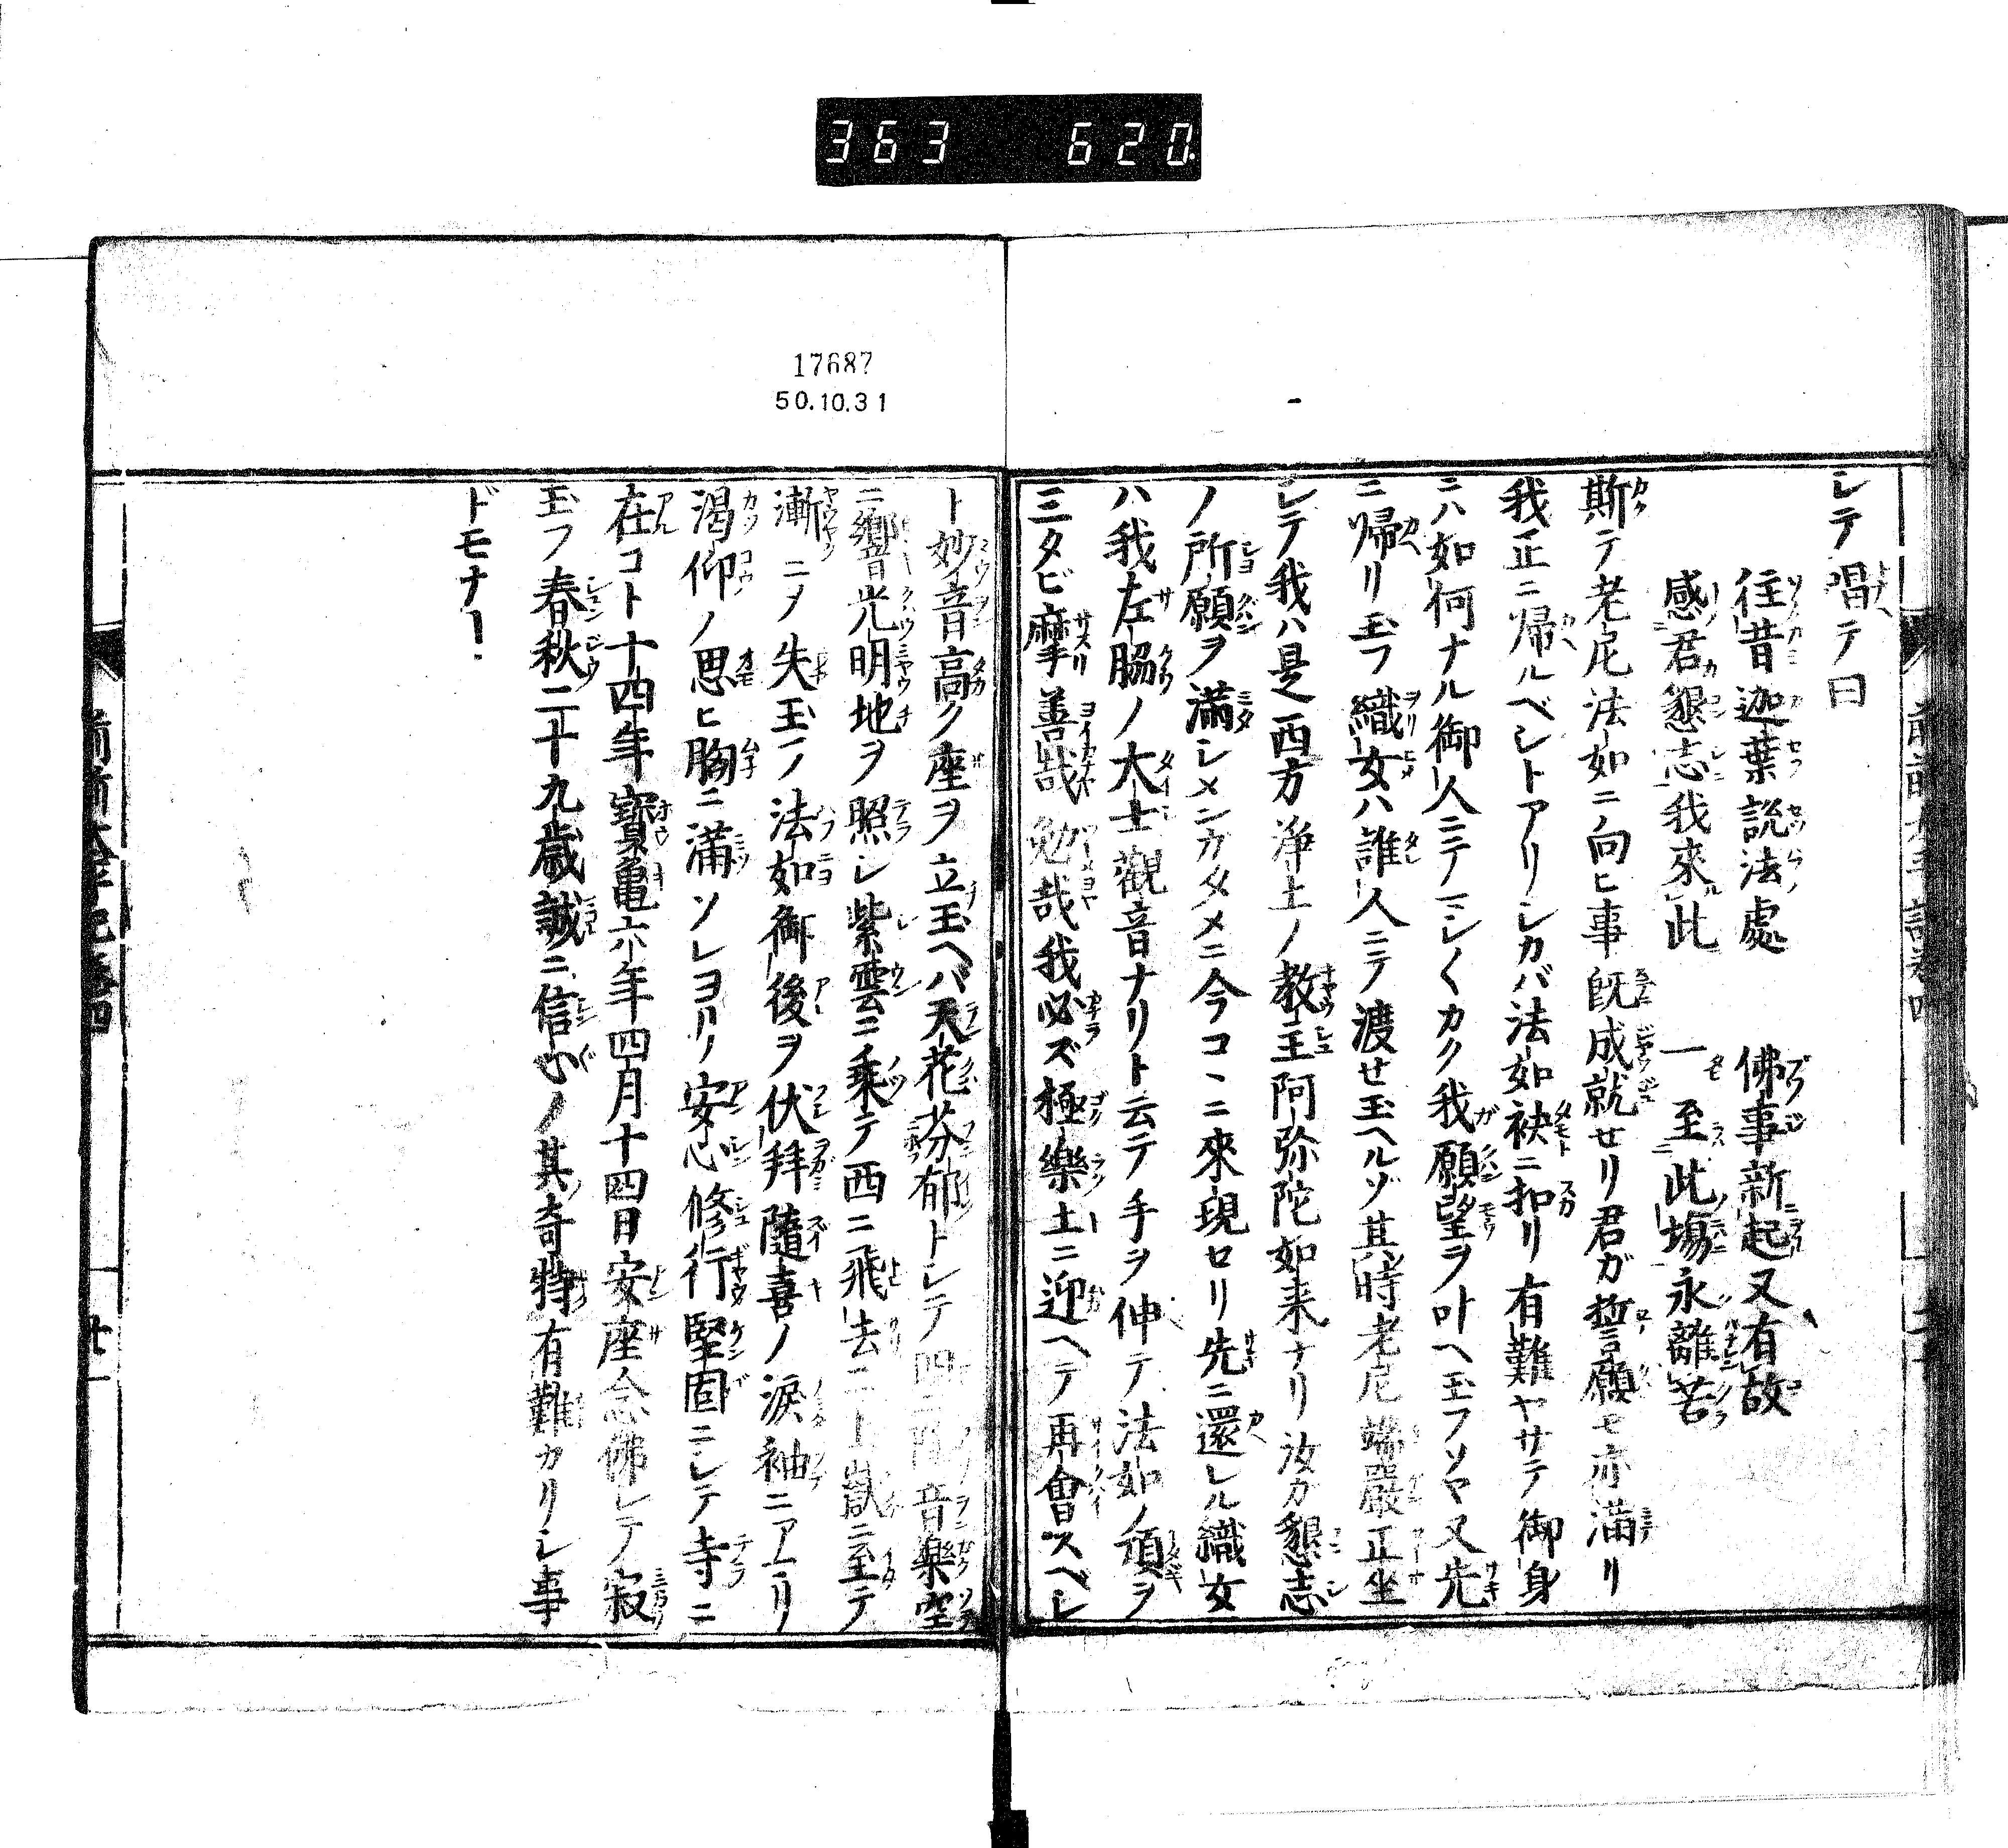 363 620.
17687
50.10.31
シテ唱テ曰
往昔迦葉説法處 佛事新起又有故
感君懇志我來此 一至此場永離苦
斯テ老尼法如ニ向ヒ事既成就セリ君ガ誓願モ亦滿リ
我正ニ帰ルベシトアリシカバ法如袂ニ扣リ有難ヤサテ御身
ニハ如何ナル御人ニテマシ〱カク我願望ヲ叶ヘ玉フソヤ又先
ニ帰リ玉フ織女ハ誰人ニテ渡セ玉ヘルゾ其時老尼端嚴正坐
シテ我ハ是西方浄土ノ教主阿弥陀如来ナリ汝カ懇志
ノ所願ヲ滿シメンカタメニ今コヽニ來現セリ先ニ還レル織女
ハ我左脇ノ大士觀音ナリト云テ手ヲ伸テ法如ノ頂ヲ
三タビ摩善哉勉哉我必ズ極樂土ニ迎ヘテ再會スベシ
ト妙音高ク座ヲ立玉ヘバ天花芬郁トシテ 音樂空
ニ響光明地ヲ照シ紫雲ニ乗テ西ニ飛去ニ上嶽ニ至テ
漸ニヲ失玉フ法如御後ヲ伏拜隨喜ノ涙袖ニアマリ
渇仰ノ思ヒ胸ニ滿ソレヨリ安心修行堅固ニシテ寺ニ
在コト十四年寳亀六年四月十四日安座念佛シテ寂
玉フ春秋二十九歳誠ニ信心ノ其奇特有難カリシ事
ドモナリ
前々太平記巻四
廿一